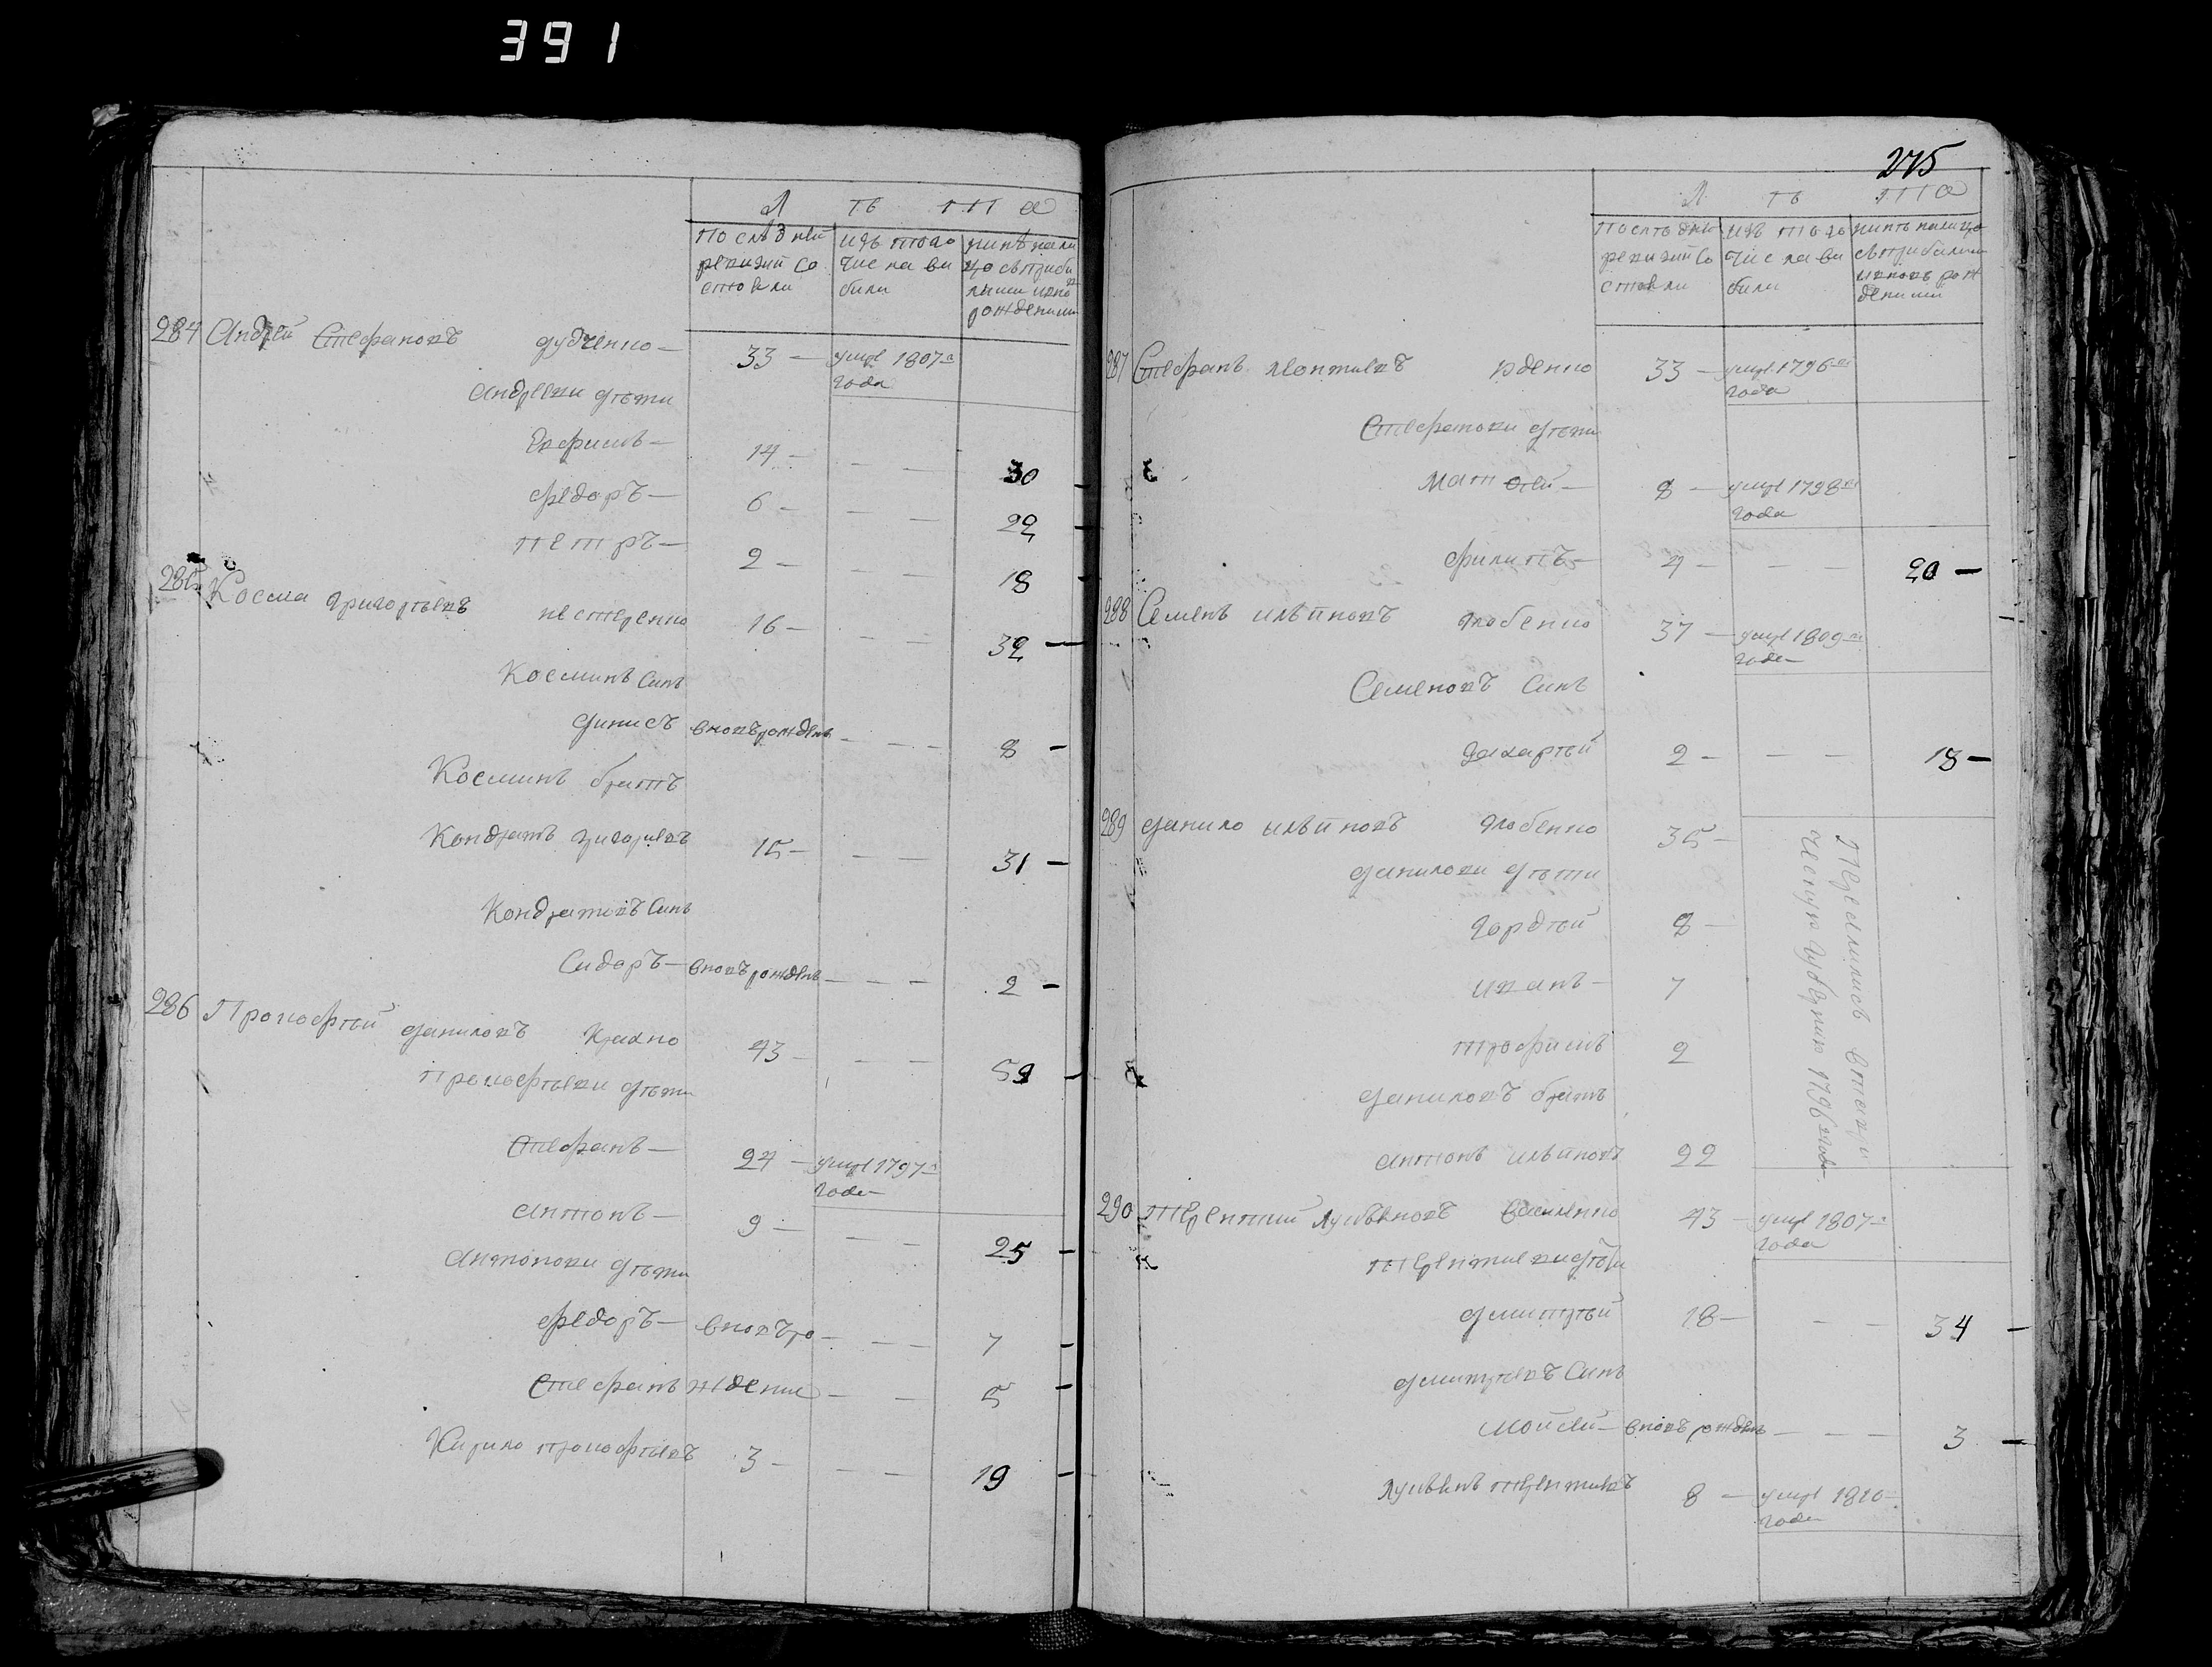 391
Л ѣ т а
последней ревизии состояли
изъ того числа выбыли
ныне налицо съ прибылыми и новорожденными
284 Андрей Стефановъ Дудченко — 33 — умре 1807го года
Андреевы дѣти
Ефимъ — 14 — — — 30 —
Федоръ — 6 — — — 22 —
Петръ — 2 — — — 18 —
285 Косма Григорьевъ Нестеренко 16 — — — 32 —
Косминъ Синъ
Динисъ вновь рожденъ — — — 8 —
Косминъ братъ
Кондратъ Григорьевъ 15 — — — 31 —
Кондратовъ Синъ
Сидоръ — вновь рожденъ — — — 2 —
286 Прокофѣй Даниловъ 43 — — — 59 —
Прокофѣевы дѣти
Стефанъ — 24 — умре 1797го года
Антонъ — 9 — — — 25 —
Антоновы дѣти
Федоръ — вновь ро — — — 7 —
Стефанъ ждение — — 5 —
Кирило Прокофѣевъ 3 — — — 19 —
275
Л ѣ т а
последней ревизии состояли
изъ того числа выбыли
ныне налицо съ прибылыми и новорожденными
287 Стефанъ Леонтиевъ 33 — умре 1796го года
Стефановы дѣти
Матвѣй — 8 — умре 1798го года
Филипъ — 4 — — — 20 —
288 Семенъ Ильиновъ 37 — умре 1809го года
Семеновъ Синъ
Захарѣй 2 — — — 18 —
289 Данило Ильиновъ 35 —
Переселились в губернию 1796го года
Даниловы дѣти
Гордѣй 8 —
Иванъ — 7
Трофимъ 2
Даниловъ братъ
Антонъ Ильиновъ 22
290 Терентий Лукьяновъ Василенко 43 — умре 1807го года
Терентиевы дѣти
Дмитрѣй 18 — — — 34 —
Дмитрѣевъ Синъ
Мойсей — вновь рожденъ — — — 3 —
Лукьянъ Терентиевъ 8 — умре 1810 года